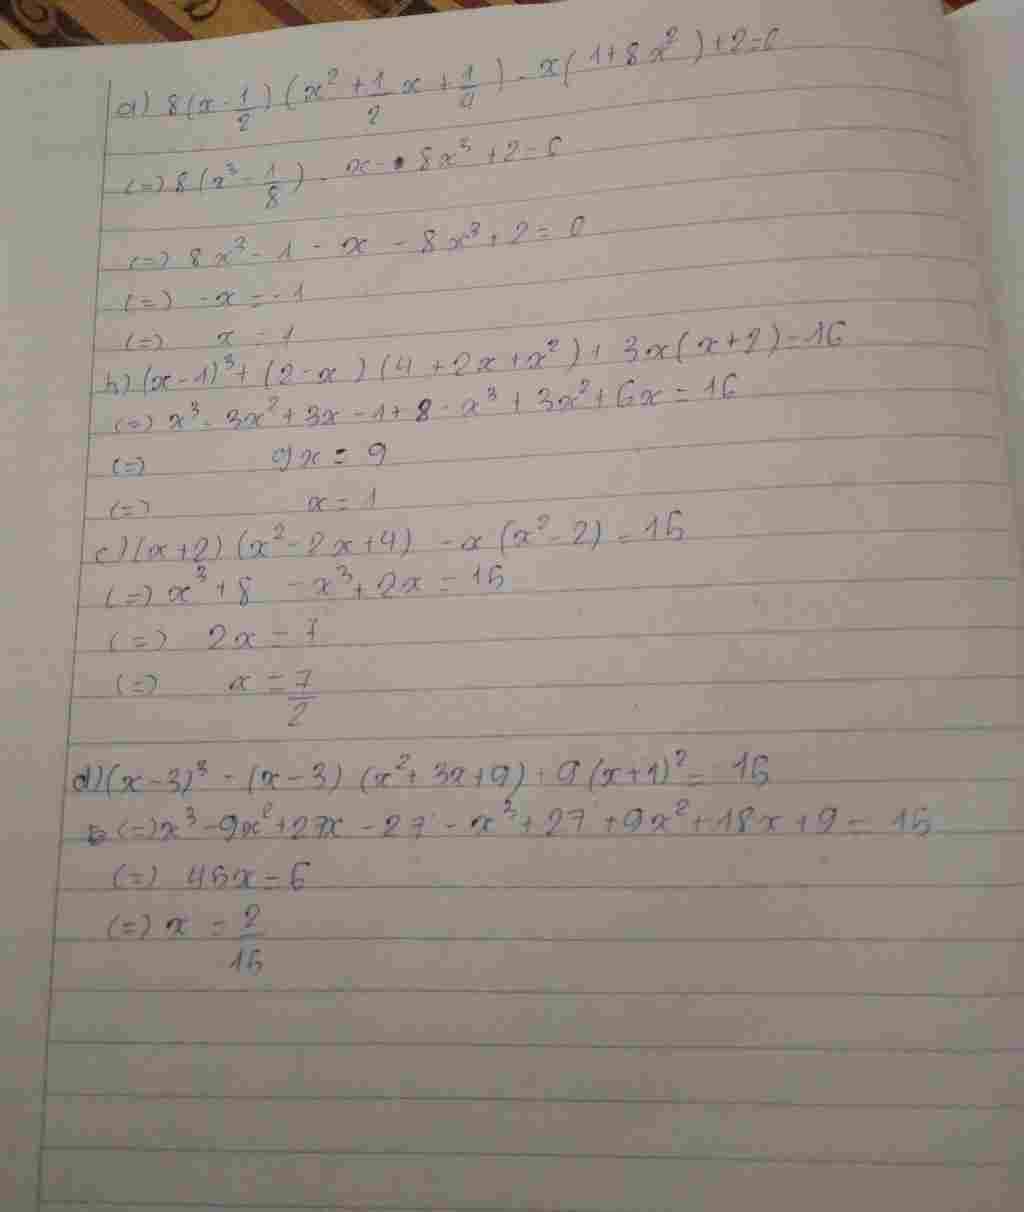 a) 8(x - 1/2)(x² + 1/2 x + 1/4) - x(1 + 8x²) + 2 = 0
(=) 8(x³ - 1/8) - x - 8x³ + 2 = 0
(=) 8x³ - 1 - x - 8x³ + 2 = 0
(=) -x = -1
(=) x = 1
b) (x - 1)³ + (2 - x)(4 + 2x + x²) + 3x(x + 2) = 16
(=) x³ - 3x² + 3x - 1 + 8 - x³ + 3x² + 6x = 16
(=) 9x = 9
(=) x = 1
c) (x + 2)(x² - 2x + 4) - x(x² - 2) = 15
(=) x³ + 8 - x³ + 2x = 15
(=) 2x = 7
(=) x = 7/2
d) (x - 3)³ - (x - 3)(x² + 3x + 9) + 9(x + 1)² = 15
(=) x³ - 9x² + 27x - 27 - x³ + 27 + 9x² + 18x + 9 = 15
(=) 45x = 6
(=) x = 2/15